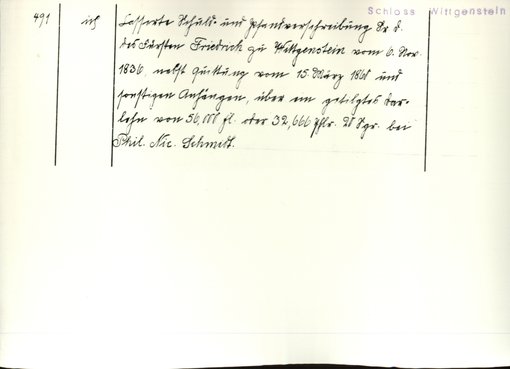 Schloss Wittgenstein
491 ich Cassierte Schuld- und Pfandverschreibung Sr. D.
des Fürsten Friedrich zu Wittgenstein vom 6. Nov.
1836, nebst Quittung vom 15. März 1868 und
sonstigen Anhängen, über ein getilgtes Dar-
lehn von 56,000 fl. oder 32,666 Thlr. 20 Sgr. bei
Phil. Nic. Schmidt.